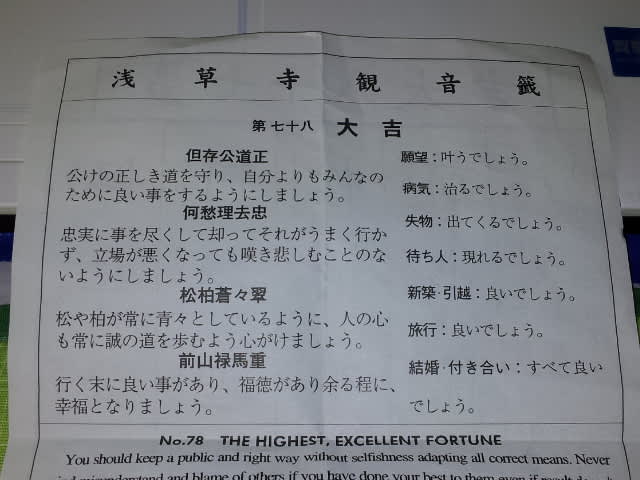 浅草寺観音籤
第七十八 大吉
但存公道正
公けの正しき道を守り、自分よりもみんなの
ために良い事をするようにしましょう。
何愁理去忠
忠実に事を尽くして却ってそれがうまく行か
ず、立場が悪くなっても嘆き悲しむことのな
いようにしましょう。
松柏蒼々翠
松や柏が常に青々としているように、人の心
も常に誠の道を歩むよう心がけましょう。
前山禄馬重
行く末に良い事があり、福徳があり余る程に、
幸福となりましょう。
願望：叶うでしょう。
病気：治るでしょう。
失物：出てくるでしょう。
待ち人：現れるでしょう。
新築・引越：良いでしょう。
旅行：良いでしょう。
結婚・付き合い：すべて良い
でしょう。
No.78 THE HIGHEST, EXCELLENT FORTUNE
You should keep a public and right way without selfishness adapting all correct means. Never
misunderstand and blame of others if you have done your best to them even if result